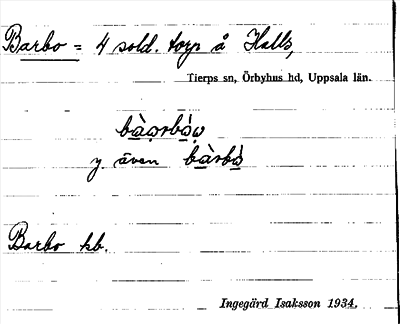 Barbo = 4 sold. torp å Halls,
Tierps sn, Örbyhus hd, Uppsala län.
bàorbȧo̤
y. även bàrbȧ
Barbo kb.
Ingegärd Isaksson 1934.